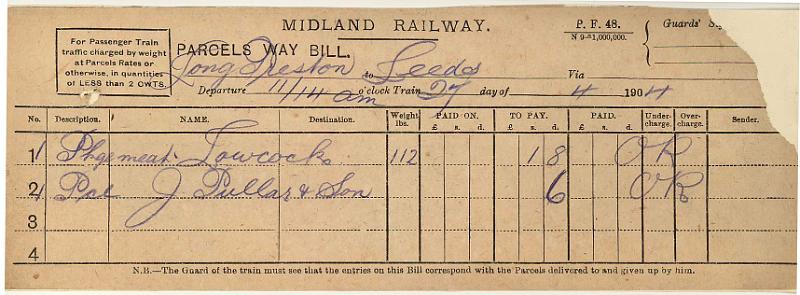 MIDLAND RAILWAY.
P. F. 48.
N 9-1,000,000.
Guards'
For Passenger Train
traffic charged by weight
at Parcels Rates or
otherwise, in quantities
of LESS than 2 CWTS.
PARCELS WAY BILL.
Long Preston to Leeds Via
Departure 11/14 am o'clock Train 27 day of 4 1904
No. Description. NAME. Destination. Weight lbs. PAID ON. TO PAY. PAID. Under-charge. Over-charge. Sender.
£ s. d. £ s. d. £ s. d.
1 1 Pkge meat Lowcock 112 1 8 OR
2 1 Pcl J Pullar & Son 6 OR
3
4
N.B.—The Guard of the train must see that the entries on this Bill correspond with the Parcels delivered to and given up by him.